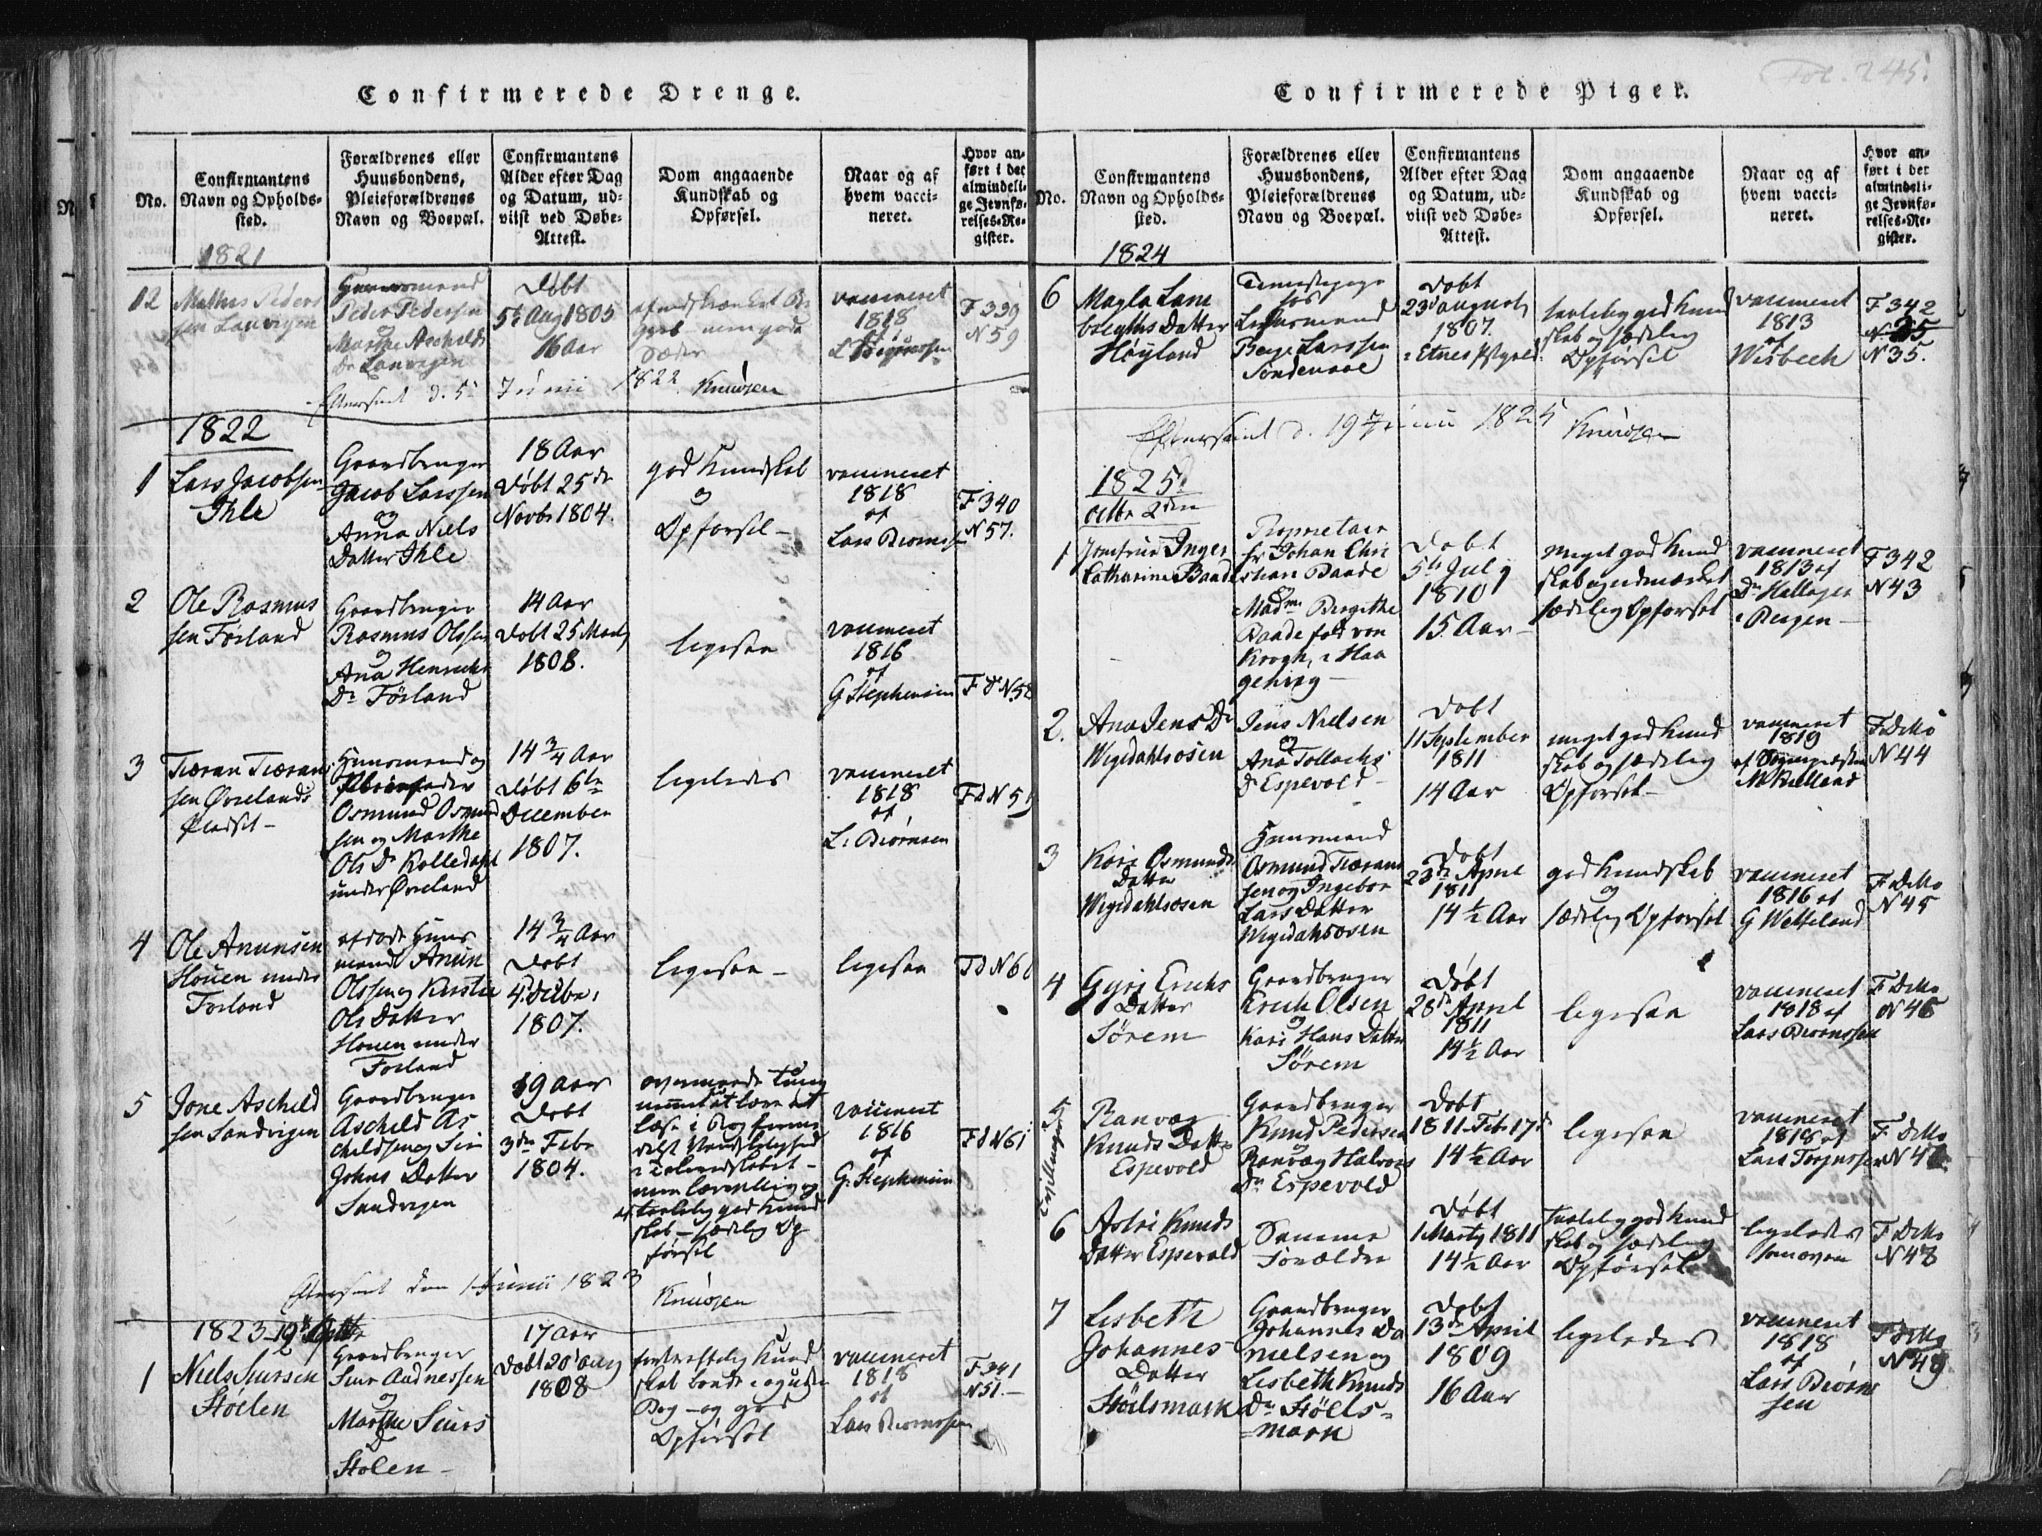 Confirmerede Drenge.
No.
Confirmantens
Navn og Opholds-
sted.
Forældrenes eller
Huusbondens,
Pleieforældrenes
Navn og Boepæl.
Confirmantens
Alder efter Dag
og Datum, ud-
viist ved Døbe-
Attest.
Dom angaaende
Kundskab og
Opførsel.
Naar og af
hvem vacci-
neret.
Hvor an-
ført i det
almindeli-
ge Jevnfø-
relses-Re-
gister.
1821
12
Peder Pedersen
og
Døbt
5t Aug 1805
16 Aar
vaccineret
1818
F 339
N 59
Efterseet d. 5 Junii 1822 Knudsen
1822
1
Lars Jacobsen
Ihle
Gaardbruger
Jacob Larssen
og
Anna Niels
Datter Ihle
18 Aar
Døbt 25de
Novbr 1804.
god Kundskab
og
Opførsel -
vaccineret
1818
af
F 340
N 57.
2
Ole Rasmus
sen Førland
Gaardbruger
Rasmus Olssen
og
Ana Henrichs
Dr Førland
14 Aar
Døbt 25 Marty
1808.
ligesaa
vaccineret
1816
af
G Stephensen
F d N 58
3
Huusmand og
Pleiefader
Osmund Osmund
sen og Marthe
Ols Dr
under
14 3/4 Aar
Døbt 6te
December
1807.
ligeledes
vaccineret
1818
af
L. Biørnsen
F d N 59
4
Ole Anunsen
Houen under
Førland
afdøde Huus
mand Anun
Olssen og
Ols Datter
Houen under
Førland
14 3/4 Aar
Døbt
4 Decbr.
1807.
ligesaa -
ligesaa
F d N 60
5
Jone Aschild
sen Sandvigen
Gaardbruger
Aschild As
childsen og Siri
Johns Datter
Sandvigen
19 Aar
Døbt
3de Febr
1804.
god Kund
skab - sædelig Op
førsel
vaccineret
1816
af
G. Stephensen
F d N 61
Efterseet den 1 Junii 1823 Knudsen
1823
1
Niels Siursen
Støelen
Gaardbruger
Siur Aadnessen
og
Marthe Siurs
D
Stølen -
17 Aar
Døbt 20 Aug
1808
Bog - og god
Opførsel
vaccineret
1818
af
F 341
N 51. -
Confirmerede Piger.
Fol. 245.
No.
Confirmantens
Navn og Opholds-
sted.
Forældrenes eller
Huusbondens,
Pleieforældrenes
Navn og Boepæl.
Confirmantens
Alder efter Dag
og Datum, ud-
viist ved Døbe-
Attest.
Dom angaaende
Kundskab og
Opførsel.
Naar og af
hvem vacci-
neret.
Hvor an-
ført i det
almindeli-
ge Jevnfø-
relses-Re-
gister.
1824
6
Datter
Høyland
Tienestepige
hos
Lensmand
Børge Larssen
Døbt
23 August
1807.
i Etnes
taalelig god Kund
skab og sædelig
Opførsel
vaccineret
1813
af
Wisbech
F 342
N 35.
Efterseet d. 19 Junii 1825 Knudsen
1825.
octbr 2den
1
Jomfrue Inger
Catharine Baade
Proprietair
Hr Johan Chri
stian Baade
og
Madme Birgithe
Baade født von
Krogh, i Haa
genvig -
Døbt
5te July
1810
15 Aar -
meget god Kund
skab og udmærket
sædelig Opførsel
vaccineret
1813 af
Dr
i Bergen -
F 342
N 43
2.
Ana Jens Dr
Wigedahlsosen
Jens Nielsen
og
Ana Tollachs
Dr Espevold -
Døbt
11 September
1811
14 Aar
meget god Kund
skab og sædelig
Opførsel -
vaccineret
1819
F Ditto
N 44
3
Kari Osmunds
Datter
Wigedahlsosen
Huusmand
Osmund
sen og Ingebor
Lars Datter
Wigedahlsosen
Døbt
23de April
1811
14 1/2 Aar
god Kundskab
og
sædelig Opførsel
vaccineret
1816 af
G Wetteland
F Ditto
N 45
4
Gyri Erichs
Datter
Sørem
Gaardbruger
Erich Olsen
og
Kari Hans Datter
Sørem
Døbt
28de April
1811
14 1/2 Aar
ligesaa
vaccineret
1818 af
Lars Biørnssen
F Ditto
N 46
5
Tvillinger
Ranvæg
Knuds Datter
Espevold
Gaardbruger
Knud Pedersen
og
Ranvæg Halvors
Dr Espevold
Døbt
1811 Febr 17de
14 1/2 Aar
ligesaa
vaccineret
1818 af
F Ditto
N 47
6
Astri Knuds
Datter Espevold
Samme
Forældre
Døbt
1 Marty 1811
14 1/2 Aar
Taalelig god Kund
skab og sædelig
Opførsel
ligeledes
som oven
F Ditto
N 48
7
Lisbeth
Johannes
Datter
Støilsmark
Gaardbruger
Johannes Da
nielsen og
Lisbeth Knuds
Dr Støels=
=mark
Døbt
13de April
1809
16 Aar
ligeledes
vaccineret
1818
af
Lars Biørn
sen
F Ditto
N 49